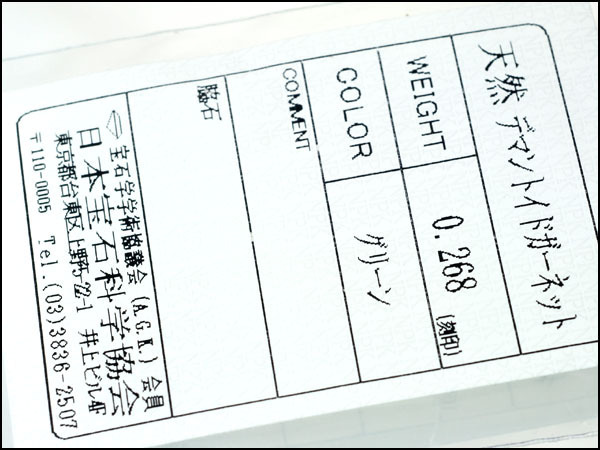 天然 デマントイドガーネット
WEIGHT 0.268 (刻印)
COLOR グリーン
COMMENT
脇石
宝石学学術協議会 (A.G.K.) 会員
日本宝石科学協会
東京都台東区上野5-22-1 井上ビル4F
〒110-0005 Tel.(03)3836-2507